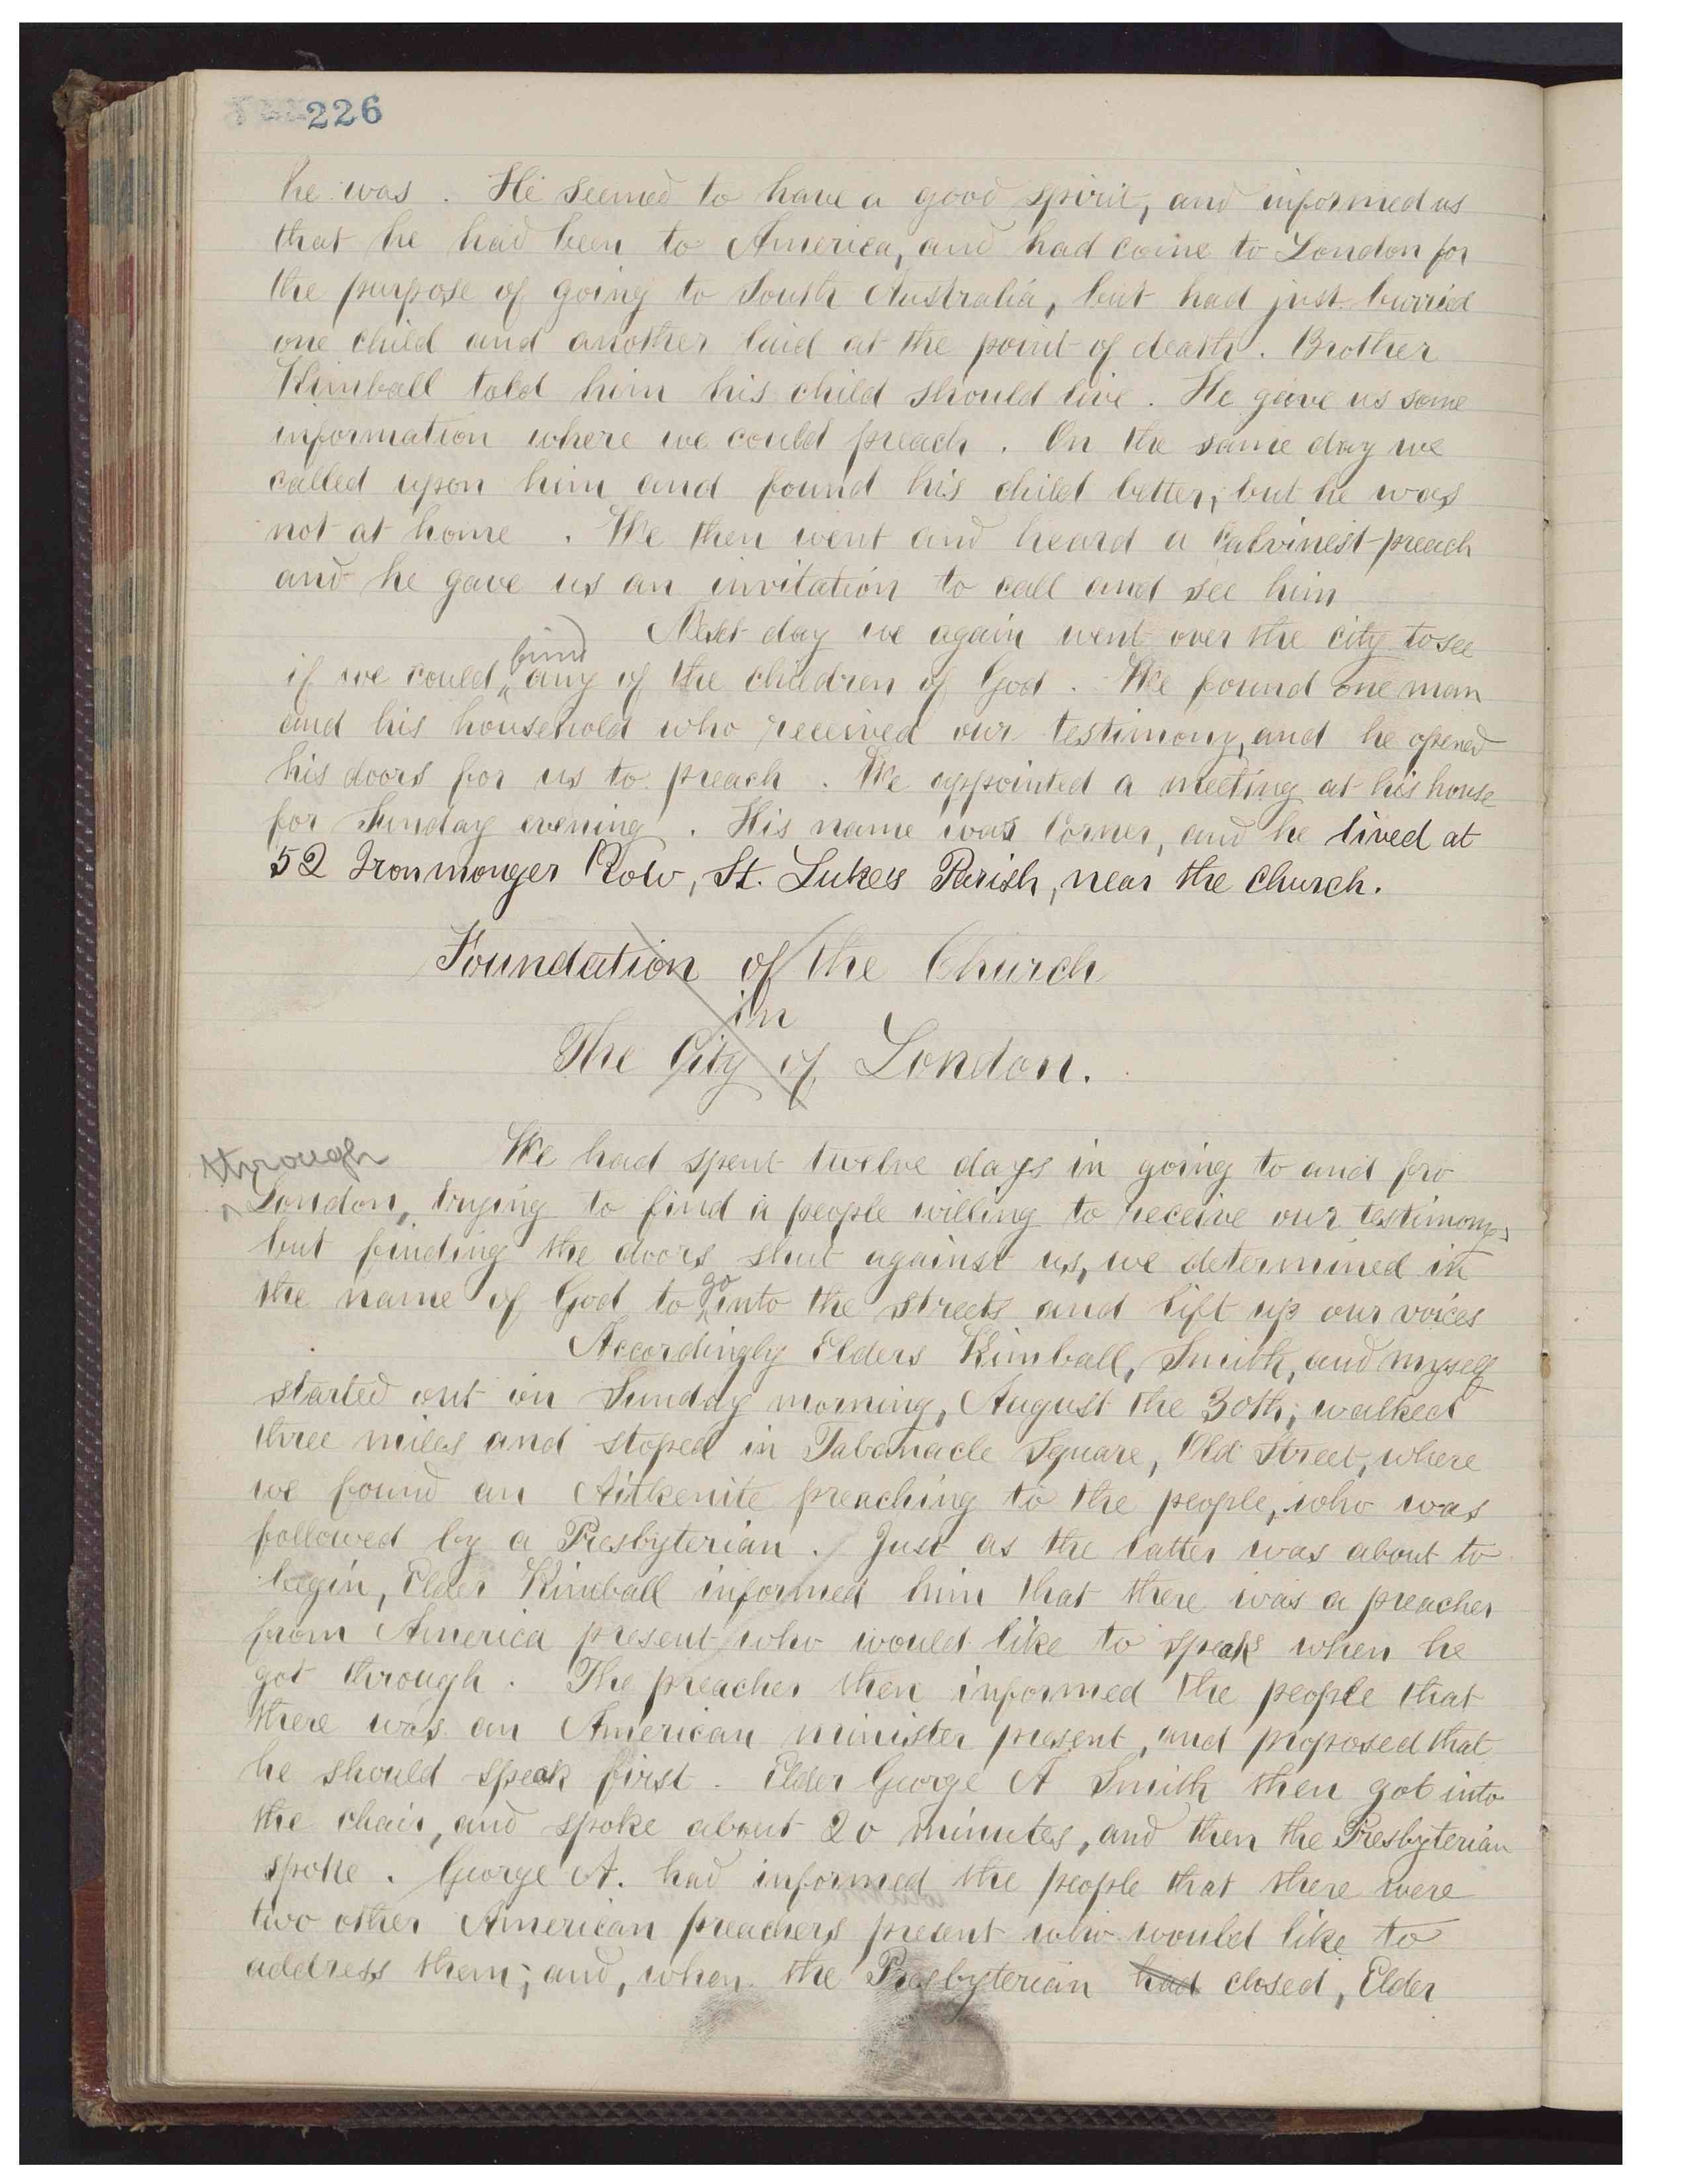 226
he was. He seemed to have a good spirit, and informed us
that he had been to America, and had come to London for
the purpose of going to South Australia, but had just burried
one child and another laid at the point of death. Brother
Kimball told him his child should live. He gave us some
information where we could preach. On the same day we
called upon him and found his child better; but he was
not at home. We then went and heard a Calvinest preach
and he gave us an invitation to call and see him
Next day we again went over the city to see
if we could find any of the children of God. We found one man
and his household who received our testimony, and he opened
his doors for us to preach. We appointed a meeting at his house
for Sunday evening. His name was Corner, and he lived at
52 Ironmonger Row, St. Luke's Parish, near the church.
Foundation of the Church
in
The City of London.
We had spent twelve days in going to and fro
through London, trying to find a people willing to receive our testimony,
but finding the doors shut against us, we determined in
the name of God to go into the streets and lift up our voices
Accordingly Elders Kimball, Smith, and myself
started out on Sunday morning, August the 30th; walked
three miles and stoped in Tabanacle Square, Old Street, where
we found an Aitkenite preaching to the people, who was
followed by a Presbyterian. Just as the latter was about to
begin, Elder Kimball informed him that there was a preacher
from America present who would like to speak when he
got through. The preacher then informed the people that
there was an American minister present, and proposed that
he should speak first. Elder George A Smith then got into
the chair, and spoke about 20 minutes, and then the Presbyterian
spoke. George A. had informed the people that there were
two other American preachers present who would like to
address them; and, when the Presbyterian had closed, Elder